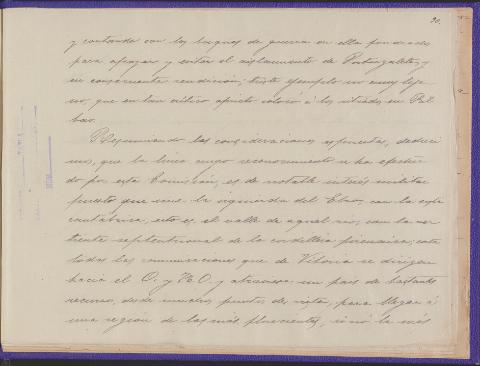 20.
y contando con los buques de guerra en ella fondeados
para apoyar y evitar el aislamiento de Portugalete y
su consecuente rendición; triste ejemplo no muy leja-
no, que en tan crítico aprieto colocó á los sitiados en Bil-
bao.
Resumiendo las consideraciones expuestas, deduci-
mos, que la línea cuyo reconocimiento se ha efectua-
do por esta Comisión, es de notable interés militar
puesto que une la izquierda del Ebro, con la costa
cantábrica, esto es el valle de aquel rio, con la ver-
tiente septentrional de la cordillera pirenaica; corta
todas las comunicaciones que de Vitoria se dirigen
hacia el O. y N.O. y atraviesa un pais de bastantes
recursos, desde muchos puntos de vista, para llegar á
una region de las más florecientes, si nó la más